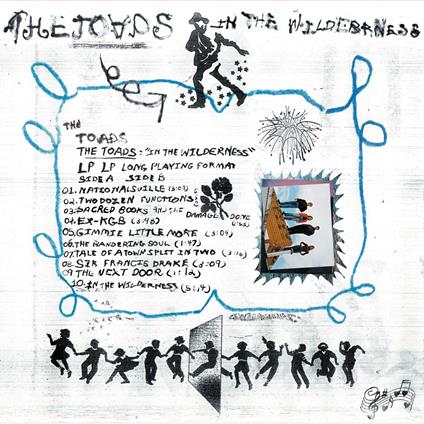 THE TOADS IN THE WILDERNESS
THE
TOADS
THE TOADS: "IN THE WILDERNESS"
LP LP LONG PLAYING FORMAT
SIDE A SIDE B
01. NATIONALSVILLE
02. TWO DOZEN FUNCTIONS
03. SACRED BOOKS AND THE DAMAGE DONE
04. EX-KGB (3:48)
05. GIMMIE LITTLE MORE (3:04)
06. THE WANDERING SOUL (1:47)
07. TALE OF A TOWN SPLIT IN TWO
08. SIR FRANCIS DRAKE (3:09)
09 THE NEXT DOOR
10. IN THE WILDERNESS (5:14)